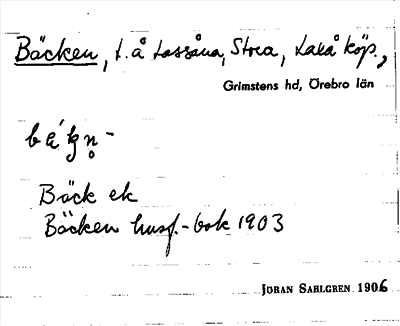 Bäcken, t.å Lassåna, Stora, Laxå köp.,
Grimstens hd, Örebro län
Bäck ek
Bäcken husf.-bok 1903
JÖRAN SAHLGREN 1906